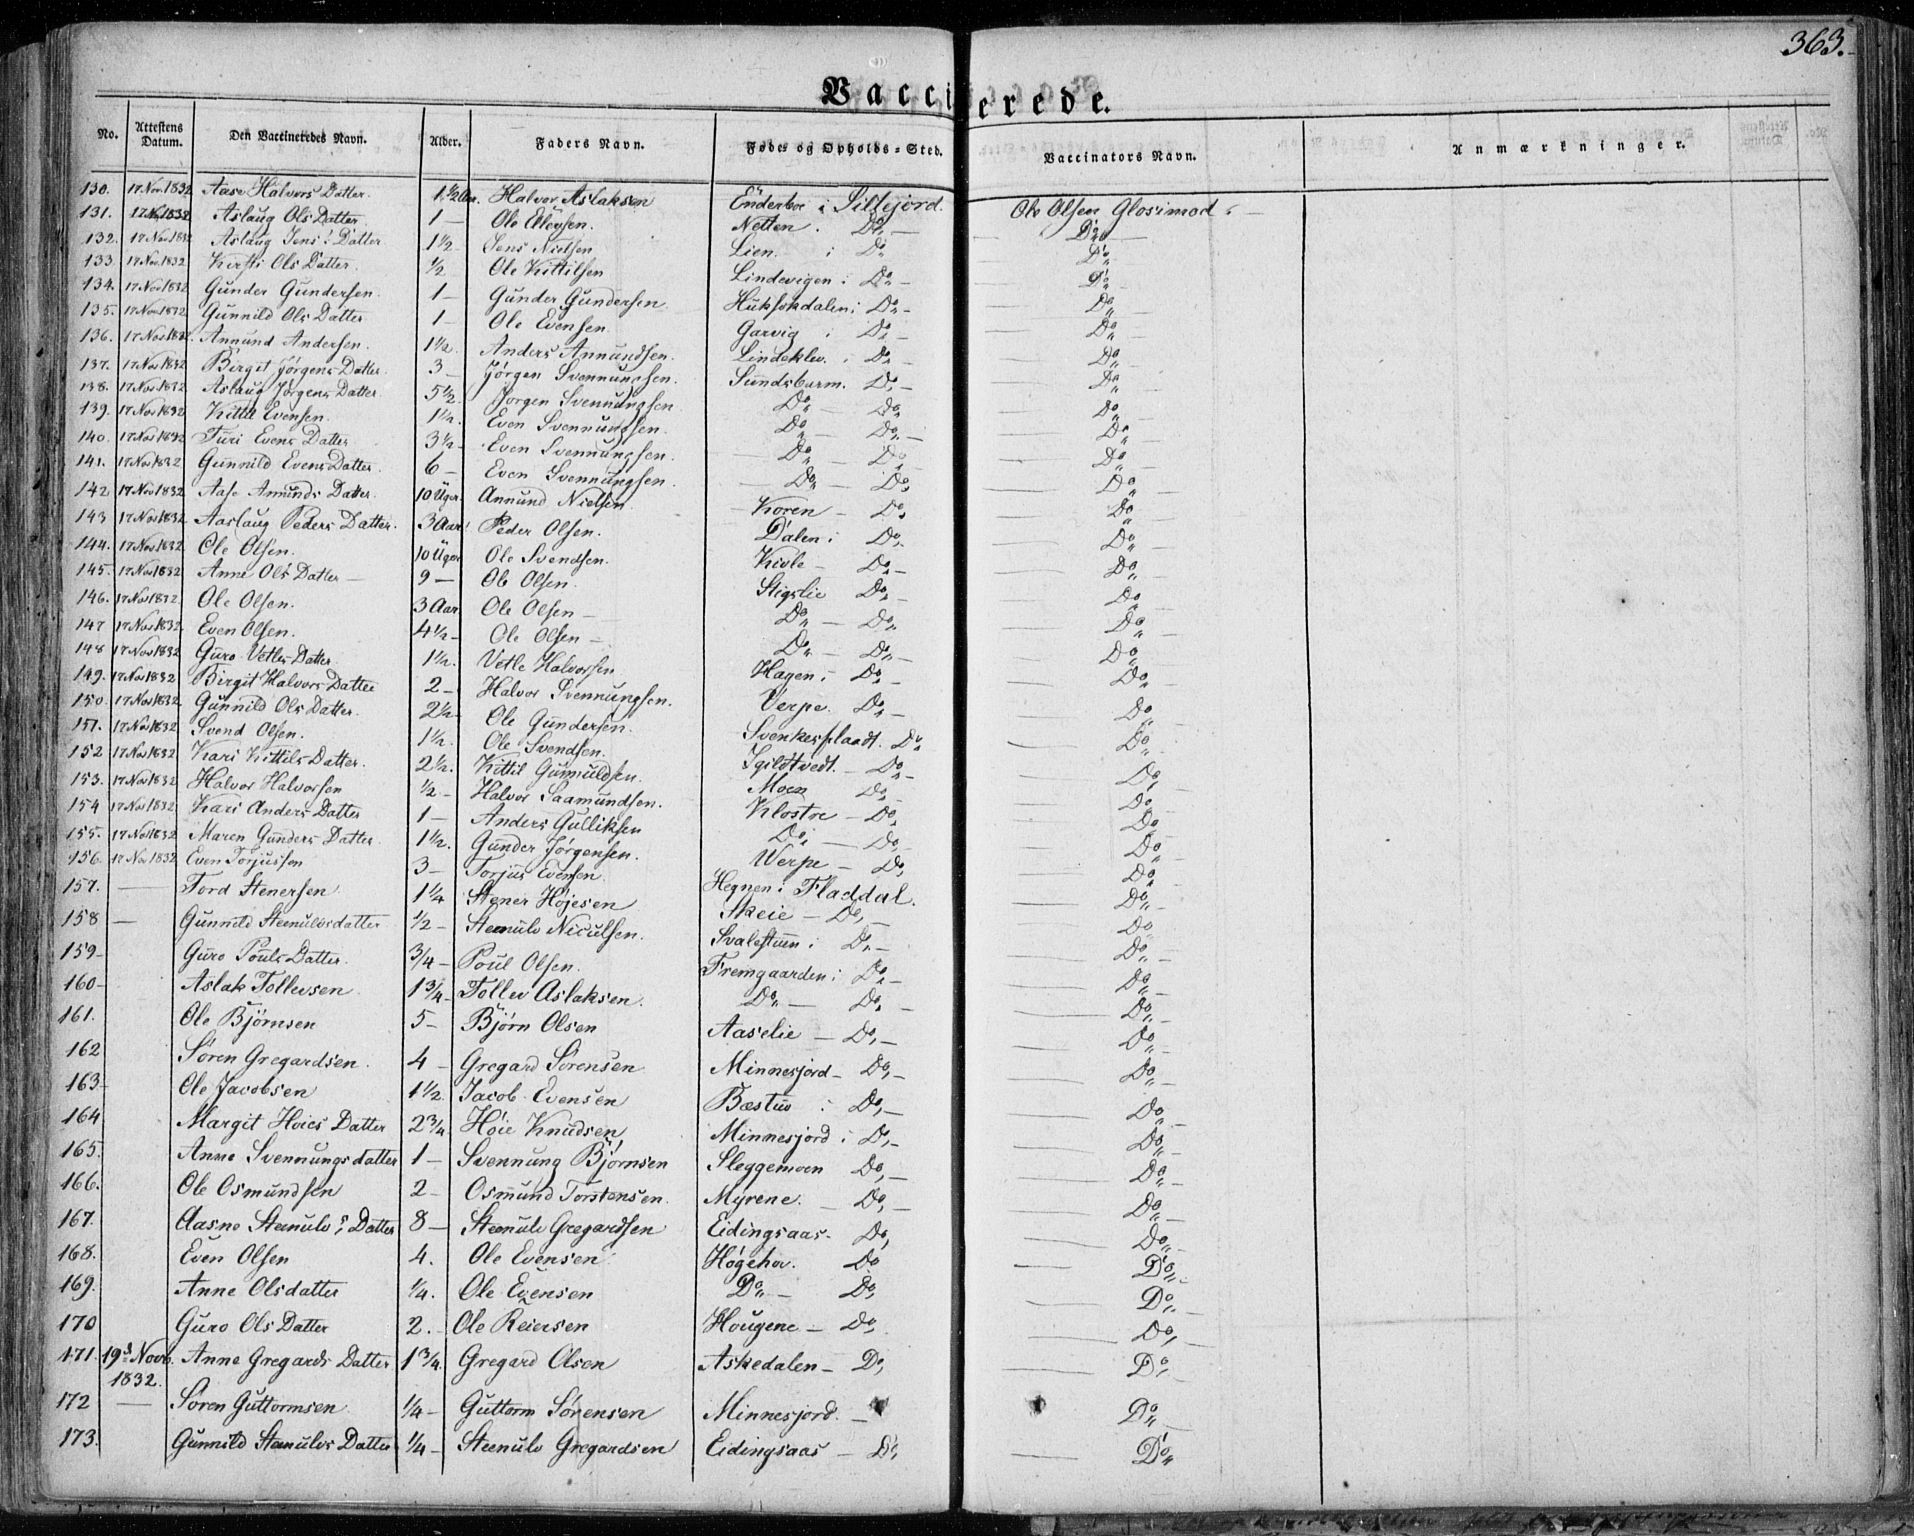 363.
Vaccinerede.
No. Attestens Datum. Den Vaccineredes Navn. Alder. Faders Navn. Føde- og Opholds-Sted. Vaccinators Navn. Anmærkninger.
130. 17 Nov. 1832 Aase Halvors Datter. 1 1/2 Aar. Halvor Aslaksen Enderboe i Sillejord. Ole Olsen Glosimod
131. 17 Nov 1832 Aslaug Ols Datter 1 — Ole Ellevsen. Netten. Do — Do
132. 17 Nov 1832 Aslaug Jens's Datter 1 1/2 Jens Nielsen Lien. i Do Do
133. 17 Nov. 1832 Kirsti Ols Datter. 1/2 Ole Kittilsen Lindevigen i Do Do
134. 17 Nov 1832 Gunder Gundersen. 1 — Gunder Gundersen Huksokdalen i Do Do
135. 17 Nov 1832 Gunnild Ols Datter 1 — Ole Evensen. Garvig i Do Do
136. 17 Nov 1832. Annund Andersen. 1 1/2. Anders Annundsen. Lindeklev. i Do Do
137. 17 Nov 1832 Birgit Jørgens Datter. 3 — Jørgen Svennungsen. Sundsbarm. Do Do
138. 17 Nov 1832 Aslaug Jørgens Datter 5 1/2. Jørgen Svennungsen Do — Do Do
139. 17 Nov 1832 Kittil Evensen. 1 1/2. Even Svennungsen. Do — Do Do
140. 17 Nov 1832 Turi Evens Datter 3 1/2 Even Svennungsen. Do — Do Do
141. 17 Nov 1832 Gunnild Evens Datter. 6 — Even Svennungsen. Do — Do Do
142 17 Nov 1832 Aase Anunds Datter. 10 Uger. Annund Nielsen. Koren — Do Do
143 17 Nov 1832. Aaslaug Peders Datter. 3 Aar Peder Olsen. Dalen i Do Do
144. 17 Nov 1832. Ole Olsen. 10 Uger Ole Svendsen. Kivle — Do Do
145. 17 Nov 1832 Anne Ols Datter — 9 — Ole Olsen. Stigslie Do Do
146. 17 Nov 1832. Ole Olsen. 3 Aar. Ole Olsen — Do — Do Do
147 17 Nov 1832. Even Olsen. 4 1/2 — Ole Olsen — Do — Do Do
148 17 Nov 1832 Guro Vetles Datter 1 1/2. Vetle Halvorsen Hagen i Do Do
149. 17 Nov 1832 Birgit Halvors Datter 2 — Halvor Svennungsen. Verpe. Do Do
150. 17 Nov 1832. Gunnild Ols Datter. 2 1/2 Ole Gundersen. Svenkesplaadt. Do Do
151. 17 Nov 1832 Svend Olsen. 1 1/2. Ole Svendsen. Igildtvedt. — Do Do
152 17 Nov 1832 Kari Kittils Datter. 2 1/2. Kittil Gunnuldsen. Moen Do Do
153. 17 Nov 1832 Halvor Halvorsen 1/2 — Halvor Saamundsen. Klostre — Do Do
154 17 Nov 1832 Kari Anders Datter 1 — Anders Gulliksen Do — Do Do
155. 17 Nov 1832 Maren Gunders Datter. 1 1/2. Gunder Jørgensen. Verpe — Do Do
156. 17 Nov 1832 Even Torjussen 3 — Torjus Evensen Hegnen i Fladdal. Do
157. — Tord Stenersen 1 1/4 Stener Højesen Skeie — Do Do
158 — Gunnild Steenulvsdatter 1/2 — Steenulv Niculsen. Svalestuen i Do Do
159 — Guro Pouls Datter. 3/4 — Poul Olsen. Fremgaarden i Do Do
160 — Aslak Tollevsen 1 3/4 Tollev Aslaksen. Do — Do Do
161. Ole Bjørnsen 5 — Bjørn Olsen Aaselie — Do Do
162 Søren Gregardsen. 4 — Gregard Sørensen Minnesjord — Do Do
163 Ole Jacobsen 1 1/2 Jacob Evensen Bæstuv i Do Do
164 Margit Hoies Datter 2 3/4 Høie Knudsen Minnesjord i Do Do
165. Anne Svennungsdatter 1 — Svennung Bjørnsen Sleggemoen Do Do
166. Ole Osmundsen 2 — Osmund Torstensen. Myrene. — Do Do
167. Aasne Steenulvs Datter 8 — Steenulv Gregardsen Eidingsaas. Do Do
168. Even Olsen 4. Ole Evensen Høgehov. Do Do
169. Anne Olsdatter 1/4. Ole Evensen Do — Do Do
170 Guro Ols Datter 2. — Ole Reiersen Hougene — Do Do
171. 19d Novb. 1832. Anne Gregards Datter 1 3/4 Gregard Olsen Askedalen — Do Do
172 — Søren Guttormsen 1/4 — Guttorm Sørensen Minnesjord. — Do
173. Gunnild Steenulvs Datter 1/4 — Steenulv Gregardsen Eidingsaas — Do Do